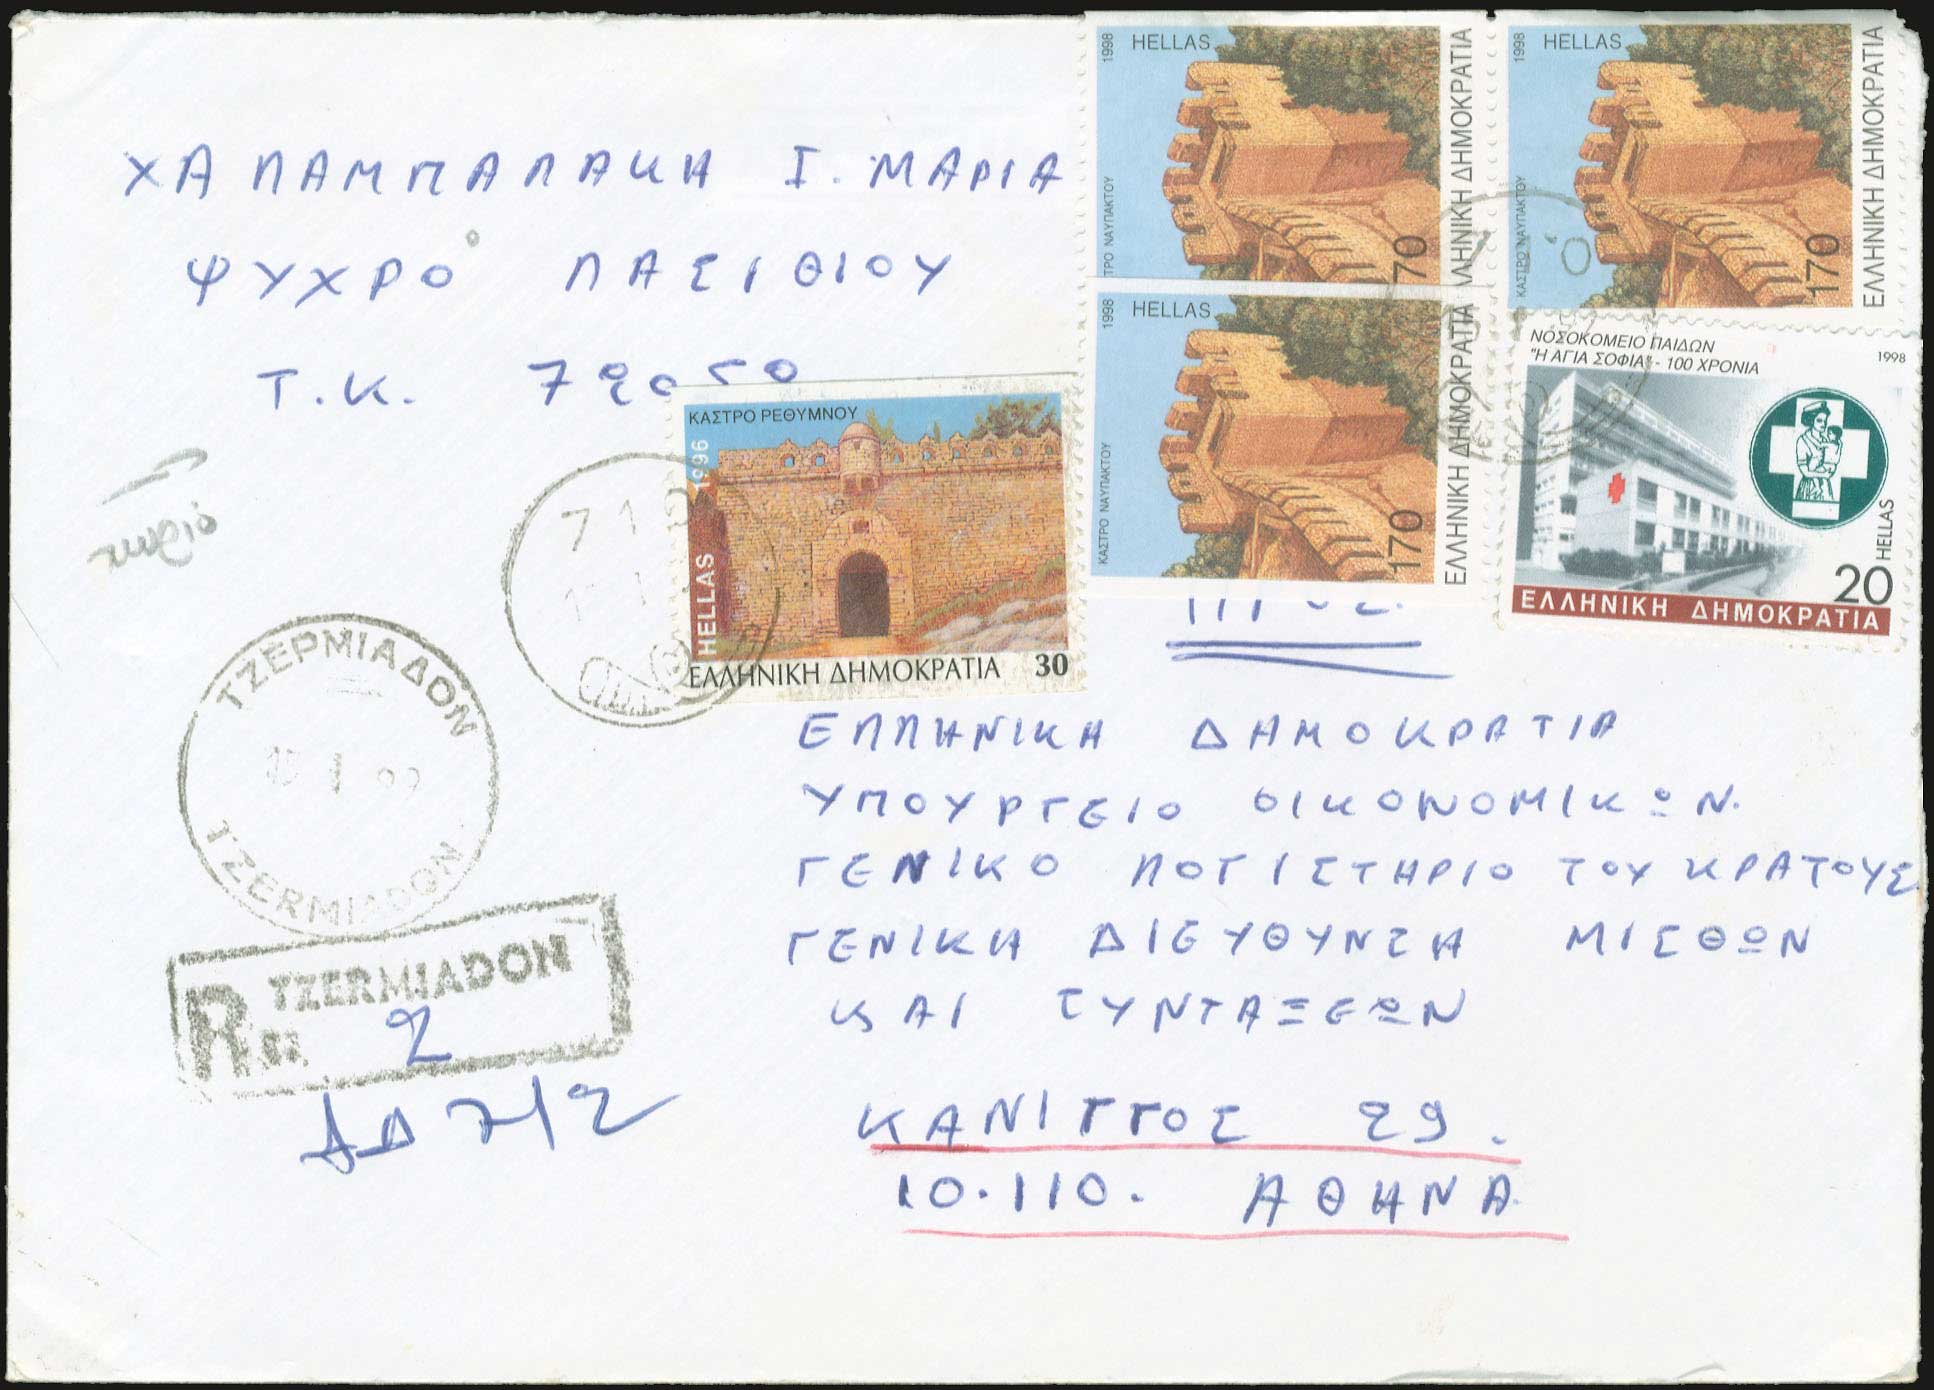 ΧΑΛΑΜΠΑΛΑΚΗ Ι. ΜΑΡΙΑ
ΨΥΧΡΟ ΛΑΣΙΘΙΟΥ
Τ.Κ. 72050
1998 HELLAS
ΚΑΣΤΡΟ ΝΑΥΠΑΚΤΟΥ
170
ΕΛΛΗΝΙΚΗ ΔΗΜΟΚΡΑΤΙΑ
1998 HELLAS
ΚΑΣΤΡΟ ΝΑΥΠΑΚΤΟΥ
170
ΕΛΛΗΝΙΚΗ ΔΗΜΟΚΡΑΤΙΑ
1998 HELLAS
ΚΑΣΤΡΟ ΝΑΥΠΑΚΤΟΥ
170
ΕΛΛΗΝΙΚΗ ΔΗΜΟΚΡΑΤΙΑ
ΝΟΣΟΚΟΜΕΙΟ ΠΑΙΔΩΝ
"Η ΑΓΙΑ ΣΟΦΙΑ" - 100 ΧΡΟΝΙΑ
1998
20 HELLAS
ΕΛΛΗΝΙΚΗ ΔΗΜΟΚΡΑΤΙΑ
ΚΑΣΤΡΟ ΡΕΘΥΜΝΟΥ
HELLAS 1996
ΕΛΛΗΝΙΚΗ ΔΗΜΟΚΡΑΤΙΑ 30
ΠΡΟΣ.
ΕΛΛΗΝΙΚΗ ΔΗΜΟΚΡΑΤΙΑ
ΥΠΟΥΡΓΕΙΟ ΟΙΚΟΝΟΜΙΚΩΝ.
ΓΕΝΙΚΟ ΛΟΓΙΣΤΗΡΙΟ ΤΟΥ ΚΡΑΤΟΥΣ
ΓΕΝΙΚΗ ΔΙΕΥΘΥΝΣΗ ΜΙΣΘΩΝ
ΚΑΙ ΣΥΝΤΑΞΕΩΝ
ΚΑΝΙΓΓΟΣ 29.
10.110. ΑΘΗΝΑ.
ΤΖΕΡΜΙΑΔΟΝ
TZERMIADON
R TZERMIADON
2